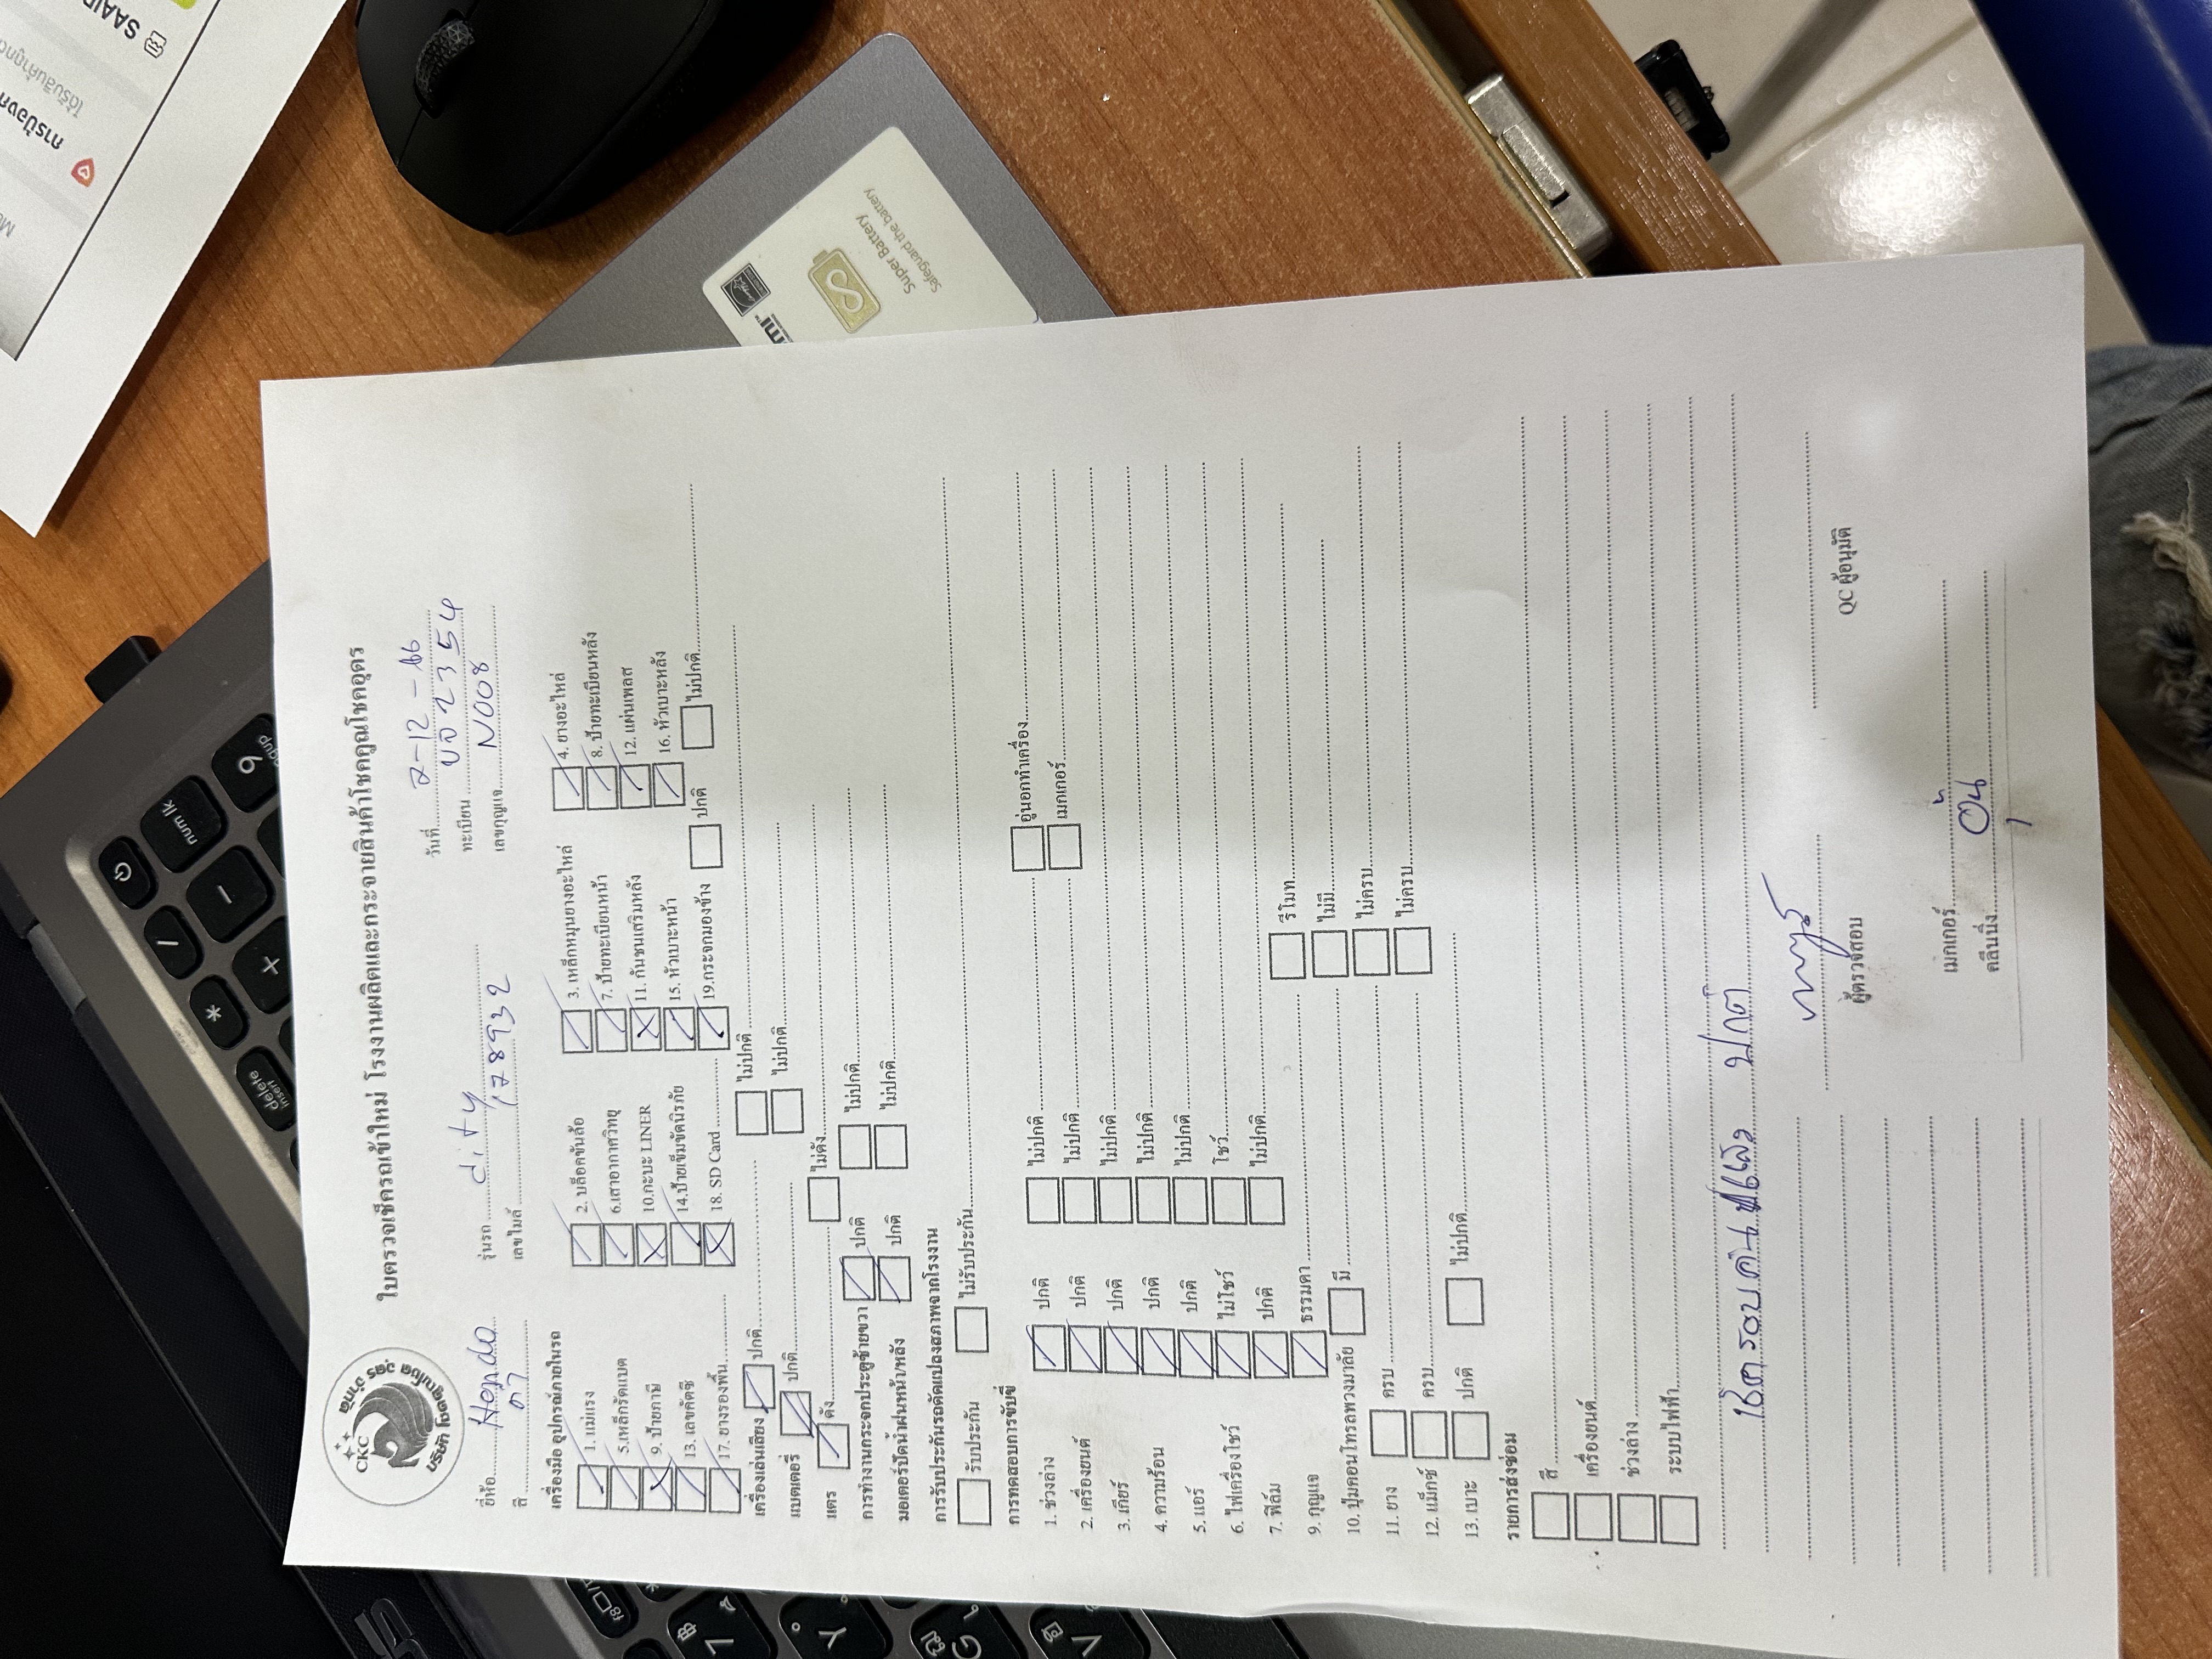 CKC
บริษัท คูณโชค อุดร จำกัด
ใบตรวจเช็ครถเข้าใหม่ โรงงานผลิตและกระจายสินค้าโชคคูณโชคอุดร
วันที่ 2-12-66
ยี่ห้อ Honda รุ่นรถ city ทะเบียน ขจ 2354
สี เทา เลขไมล์ 178932 เลขกุญแจ N008
เครื่องมือ อุปกรณ์ภายในรถ
1. แม่แรง 2. บล็อคขันล้อ 3. เหล็กหมุนยางอะไหล่ 4. ยางอะไหล่
5.เหล็กรัดแบต 6.เสาอากาศวิทยุ 7. ป้ายทะเบียนหน้า 8. ป้ายทะเบียนหลัง
9. ป้ายภาษี 10.กะบะ LINER 11. กันชนเสริมหลัง 12. แผ่นเพลส
13. เลขคัตซี 14.ป้ายเข็มขัดนิรภัย 15. หัวเบาะหน้า 16. หัวเบาะหลัง
17. ยางรองพื้น 18. SD Card 19.กระจกมองข้าง ปกติ ไม่ปกติ
เครื่องเล่นเสียง ปกติ ไม่ปกติ
แบตเตอรี่ ปกติ ไม่ปกติ
แตร ดัง ไม่ดัง
การทำงานกระจกประตูซ้ายขวา ปกติ ไม่ปกติ
มอเตอร์ปัดน้ำฝนหน้า/หลัง ปกติ ไม่ปกติ
การรับประกันรถดัดแปลงสภาพจากโรงงาน
รับประกัน ไม่รับประกัน
การทดสอบการขับขี่
1. ช่วงล่าง ปกติ ไม่ปกติ อู่นอกทำเครื่อง
2. เครื่องยนต์ ปกติ ไม่ปกติ เมกเกอร์
3. เกียร์ ปกติ ไม่ปกติ
4. ความร้อน ปกติ ไม่ปกติ
5. แอร์ ปกติ ไม่ปกติ
6. ไฟเครื่องโชว์ ไม่โชว์ โชว์
7. ฟิล์ม ปกติ ไม่ปกติ
9. กุญแจ ธรรมดา รีโมท
10. ปุ่มคอนโทรลพวงมาลัย มี ไม่มี
11. ยาง ครบ ไม่ครบ
12. แม็กซ์ ครบ ไม่ครบ
13. เบาะ ปกติ ไม่ปกติ
รายการส่งซ่อม
สี
เครื่องยนต์
ช่วงล่าง
ระบบไฟฟ้า
เช็ครอบคัน แล้ว ปกติ
ผู้ตรวจสอบ QC ผู้อนุมัติ
เมกเกอร์
คลีนนิ่ง ตั้น
Super Battery
Safeguard the battery
num lk
delete
insert
pgup
9
SAAI